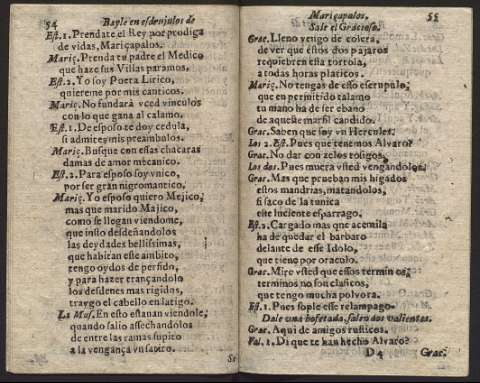 54 Bayle en esdrujulos de
Est. 1. Prendate el Rey por prodiga
de vidas, Mariçapalos.
Mariç. Prenda tu padre el Medico
que haze sus Villas paramos.
Est. 2. Yo soy Poeta Lirico,
quiereme por mis canticos.
Mariç. No fundarà vced vinculos
con lo que gana al calamo.
Est. 1. De esposo te doy cedula,
si admites mis preambulos.
Mariç. Busque con essas chacaras
damas de amor mecanico.
Est. 2. Para esposo soy vnico,
por ser gran nigromantico.
Mariç. Yo esposo quiero Mejico,
mas que marido Majico,
como se llegan viendome,
que insto desdeñandolos
las deydades bellissimas,
que habitan este ambito,
tengo oydos de perfido,
y para hazer trançandolo
los desdenes mas rigidos,
traygo el cabello en latigo.
La Mus. En esto estauan viendole,
quando salio assechandolos
de entre las ramas supito
a la vengança vn satiro.
Mariçapalos. 55
Sale el Gracioso.
Grac. Lleno vengo de colera,
de ver que estos dos pajaros
requiebren esta tortola,
a todas horas platicos.
Mariç. No tengas de esso escrupulo;
que en permitido talamo
tu mano ha de ser ebano
de aqueste marfil candido.
Grac. Saben que soy vn Hercules.
Los 2. Est. Pues que tenemos Alvaro?
Grac. No dar con zelos tosigos.
Los dos. Pues muera vsted vengandolos.
Grac. Mas que prueban mis higados
estos mandrias, matandolos,
si saco de la tunica
este luciente esparrago.
Est. 2. Cargado mas que acemila
ha de quedar el barbaro
delante de esse Idolo,
que tiene por oraculo.
Grac. Mire vsted que essos terminos,
terminos no son clasicos,
que tengo mucha polvora.
Est. 1. Pues sople esse relampago.
Dale vna bofetada, salen dos valientes.
Grac. Aqui de amigos rusticos.
Val. 1. Di que te han hecho Alvaro?
D 4 Grac.